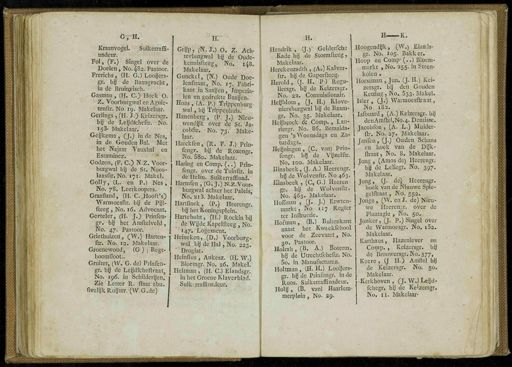 G, H.
Kraanvogel. Suikerraffi-
nadeur.
Fol, (F.) Singel over de
Doelen, No. 482. Pastoor.
Frerichs, (H G.) Looijers-
gr. bij de Baangracht,
in de Bruigsteeg.
Gaumm, (H. C.) Hoek O.
Z. Voorburgwal en Agnie-
tenstr. No. 19. Makelaar.
Gerlings, (H. J.) Keizersgr.
bij de Leijdschestr. No.
158. Makelaar.
Geijskens, (J.) in de Nes,
in de Gouden Leeuw. Met
het Najaar Vendul en
Estamineer.
Godzen, (F. C.) N. Z. Voor-
burgwal bij de St. Nico-
laasstr. No. 171. Makel.
Golly, (L. en P.) Nes,
No. 78. Leerkoopers.
Graafland, (H. F. Hooft)
Warmoesstr. bij de Pijl-
steeg, No. 16. Advocaat.
Gorteler, (H. J.) Prinsen-
gr. bij het Amstelveld,
No. 47. Pastoor.
Griethuizen, (W.) Harten-
str. No. 12. Makelaar.
Groenewoud, (G.) Rege-
boomsloot.
Gruiter, (W. G. de) Prinsen-
gr. bij de Leijdschestraat,
No. 296. in Schilderijen.
Zie Letter R. staat abu-
sivelijk Ruijter (W. G. de)
H.
Grijp, (N. J.) O. Z. Ach-
terburgwal bij de Oude-
kennissteeg, No. 148.
Makelaar.
Gunckel, (N.) Oude Doe-
lenstraat, No. 17. Fabri-
kant in Sanijen, Imperia-
len en gedrukte Baaijen.
Haas, (A. P.) Trippenburg
wal, bij de Jodenbreestr.
Makelaar.
Hamersberg, (P. J.) Nieu-
wendijk over de St. Ja-
cobstr. No. 73. Make-
laar.
Harcksen, (R. F. J.) Prin-
sengr. bij de Rozengr.
No. 580. Makelaar.
Hasing en Comp. (..) Prin-
sengr. over de Tuinstr. in
de Helm. Suikerraffinad.
Harmsen, (G. J.) N.Z. Voor-
burgwal achter het Paleis,
No. 213. Makelaar.
Hartsinck, (J.) Heerengr.
bij het Koningsplein.
Hartshals, (H.) Rockin bij
de Wijde Kapelsteeg, No.
147. Logement.
Heineken, (J.) Voorburg-
wal bij de Hal, No. 225.
Drogist.
Heinsius, Ankerst. (H. W.)
Bloemgr. No. 36. Makel.
Helman, (H. C.) Elandsgr.
in het Groene Klaverblad.
Suikerraffinadeur.
H.
Hendrik, (J.) Geldersche
Kade bij de Stormsteeg,
Makelaar.
Herckenrath, (A.) Kalver-
str. bij de Gapersteeg.
Herold, (J. H. P.) Regu-
liersgr. bij de Keizersgr.
No. 22. Commissionair.
Heijblom, (J. H.) Klove-
niersburgwal bij de Raam-
gr. No. 35. Makelaar.
Heijbroek & Comp., Lau-
riergr. No. 86. Betaalda-
gen 's Woensdags en Za-
turdags.
Heijningen, (C. van) Prin-
sengr. bij de Vijzelstr.
No. 100. Makelaar.
Hinsbeek, (J. A.) Heerengr.
bij de Wolvenstr. No. 465.
Hinsbeek, (G. G.) Heeren-
gr. bij de Wolvenstr.
No. 465. Makelaar.
Hofman, (J. J.) Eenwou-
markt, No. 117 Regter
ter Instructie.
Hofman, (R.) Buitenkant
naast het Kweekschool
voor de Zeevaart, No.
30. Pastoor.
Holcah, (B. A.) Boterm.
bij de Utrechtschestr. No.
60. in Manufacturen.
Holtman, (H. H.) Looijers-
gr. bij de Prinsengr. in de
Roos. Suikerraffinadeur.
Holij, (B. van) Haarlem-
merplein, No. 29.
H—K.
Hoogendijk, (W.) Elands-
gr. No. 105. Bakker.
Hoop en Comp. (..) Bloem-
markt, No. 255. in Steen-
kolen.
Horstman, (Jan, (J. H.) Kei-
zersgr. bij den Gouden
Ketting, No. 533. Makel.
Isler, (J.) Warmoesstraat,
No. 182.
Isfoourd, (A.) Keizersgr. bij
den Amstel, No. 4. Dienstm.
Jacobson, (A. L.) Muider-
str. No. 27. Makelaar.
Jansen, (J.) Ouden Schans
en hoek van de Dijk-
straat, No. 8. Makelaar.
Jong, (Amos de) Heerengr.
bij de Leliegr. No. 397
Makelaar.
Jong, (J. de) Heerengr.
hoek van de Nieuwe Spie-
gelstraat, No. 552.
Jonge, (W. en J. de) Nieu-
we Heerengr. over de
Plantagie, No. 50.
Junker, (J. P.) Singel over
de Warmoesgr. No. 162.
Makelaar.
Karthaus, Hazenlever en
Comp., Keizersgr. bij
de Beerenstraat, No. 377.
Keere, (J. H.) Amstel bij
de Keizersgr. No. 50.
Makelaar.
Kerkhoven, (J. W.) Leijd-
schegr. bij de Keizersgr.
No. 11. Makelaar